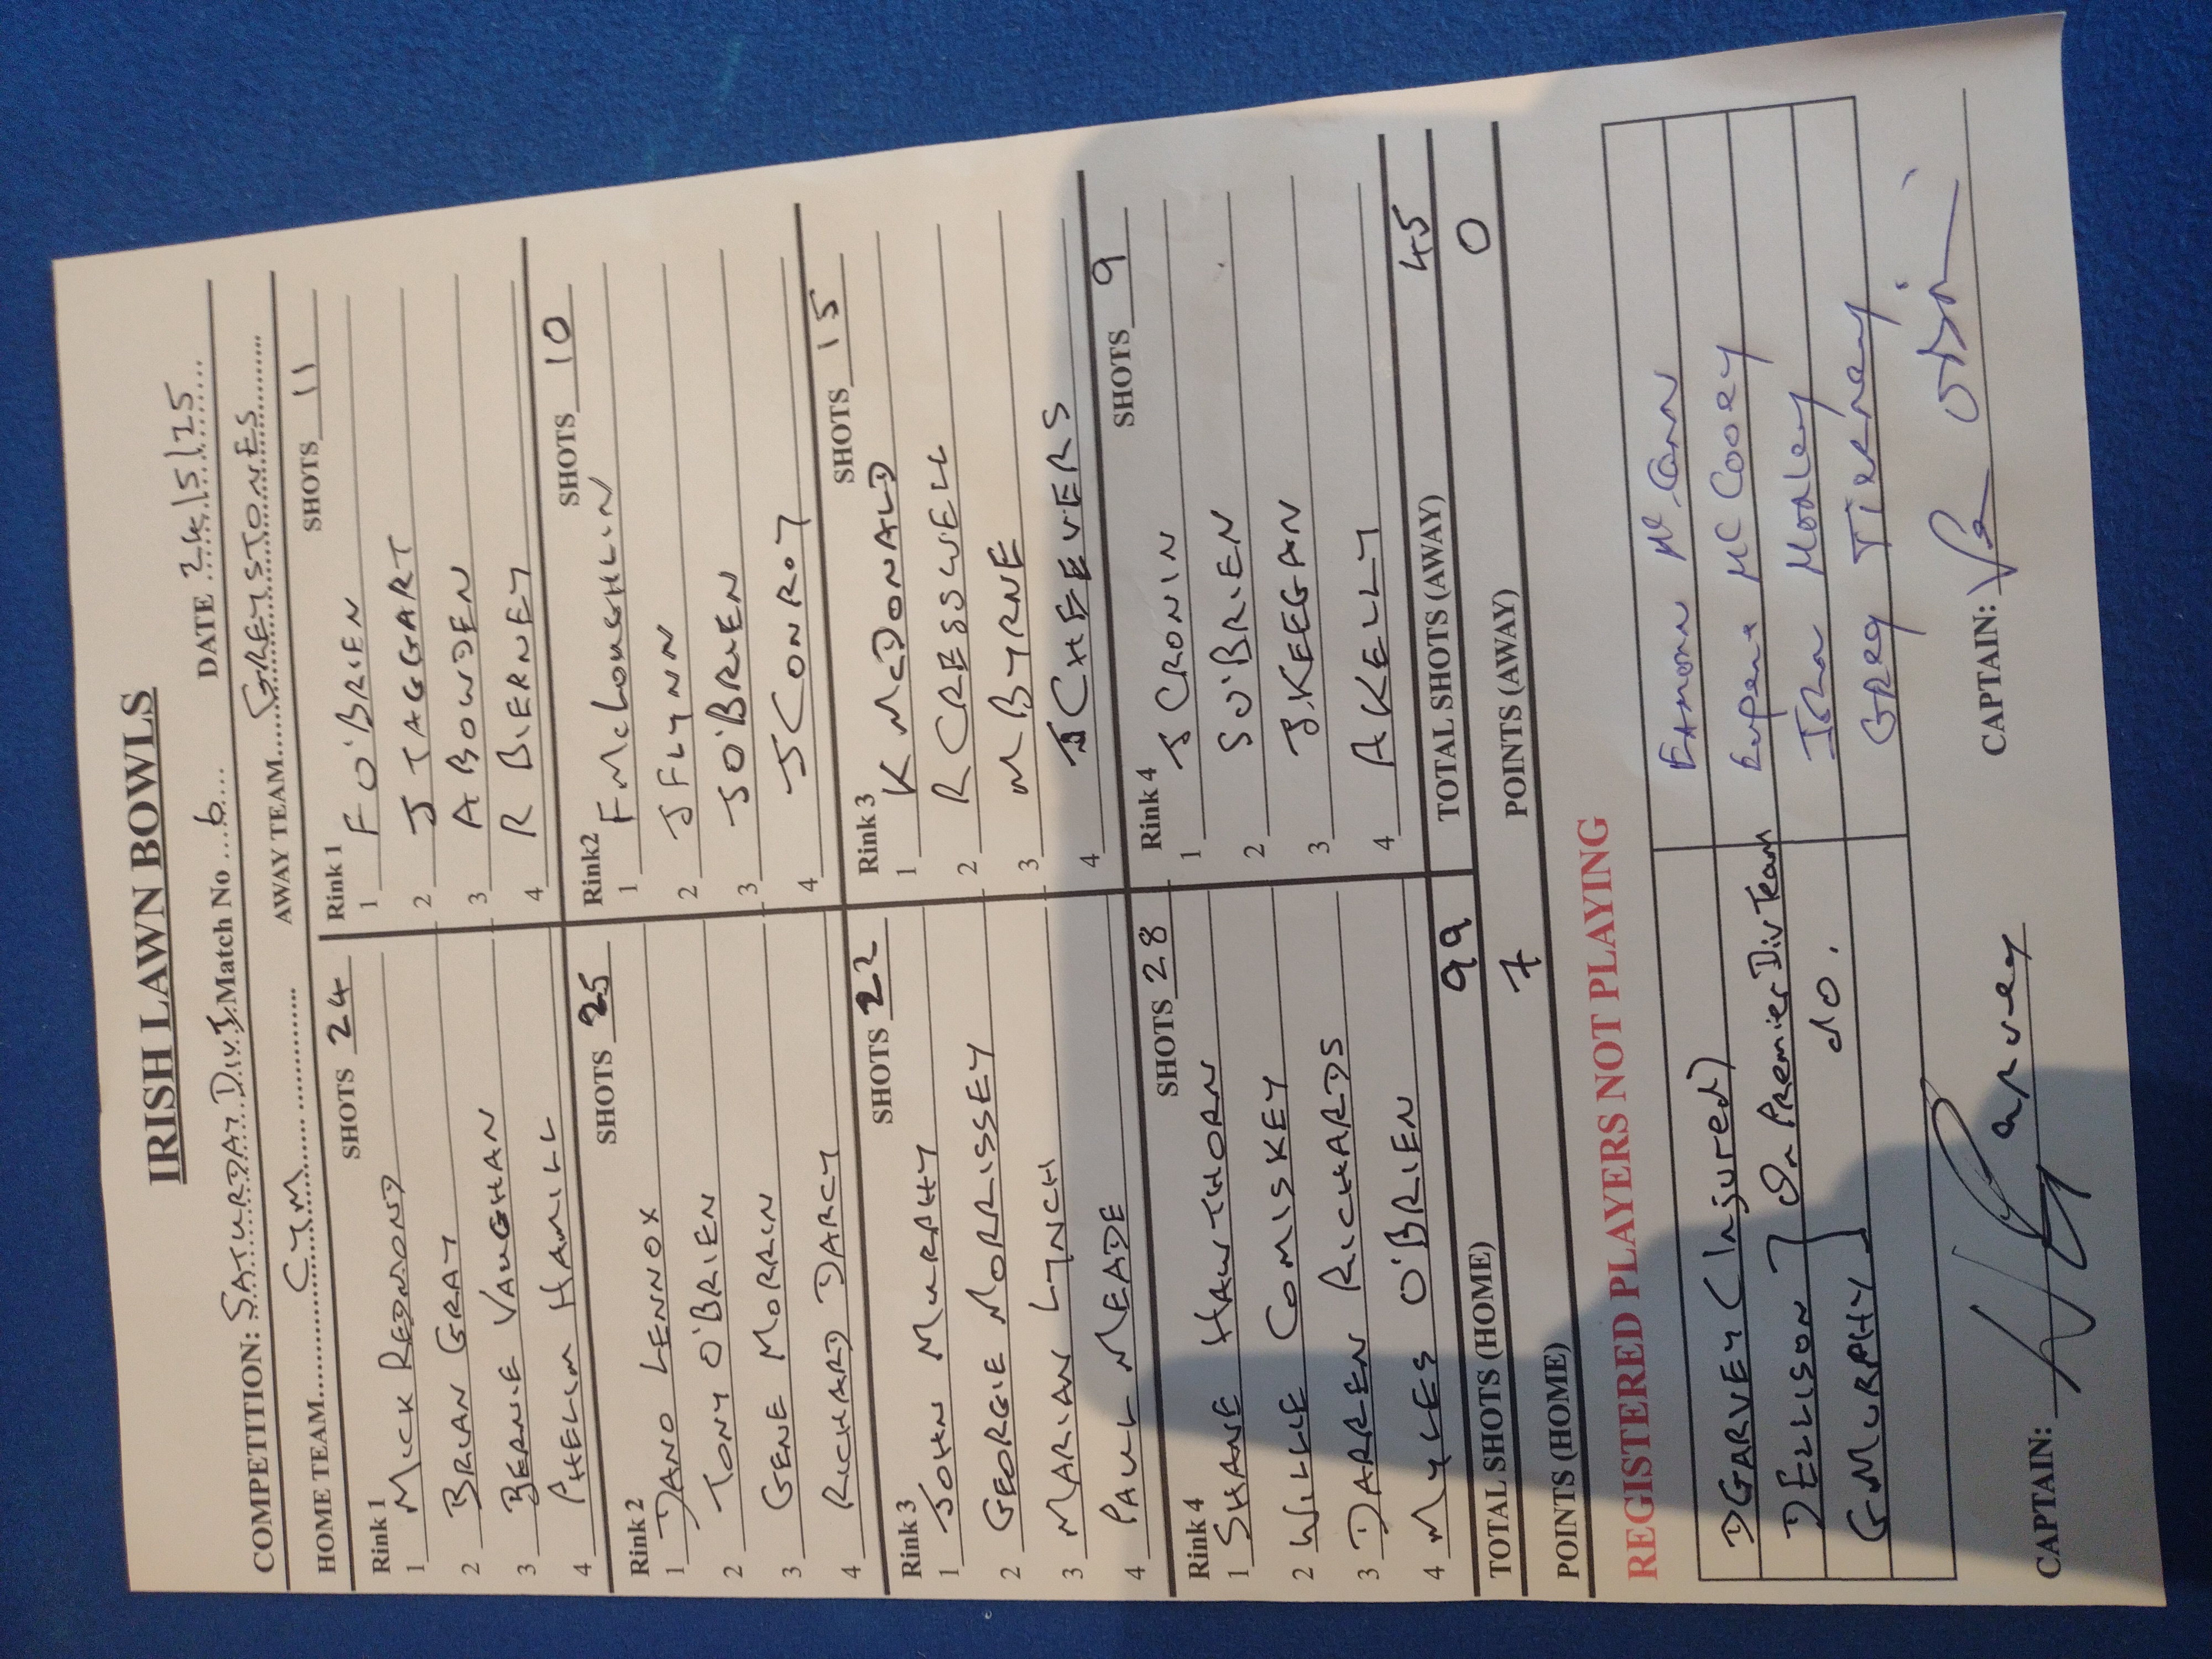 IRISH LAWN BOWLS
COMPETITION: SATURDAY Div 3 Match No 6 DATE 24/5/25
HOME TEAM CYM AWAY TEAM GREYSTONES
Rink 1 SHOTS 24 Rink 1 SHOTS 11
1 MICK REDMOND 1 F O'BRIEN
2 BRIAN GRAY 2 J TAGGART
3 BERNIE VAUGHAN 3 A BOWDEN
4 PHELIM HAMILL 4 R BIERNEY
Rink 2 SHOTS 25 Rink2 SHOTS 10
1 DANO LENNOX 1 F McLOUGHLIN
2 TONY O'BRIEN 2 J FLYNN
3 GENE MORRIN 3 J O'BRIEN
4 RICHARD DARCY 4 J CONROY
Rink 3 SHOTS 22 Rink 3 SHOTS 15
1 JOHN MURPHY 1 K McDONALD
2 GEORGIE MORRISSEY 2 R CRESSWELL
3 MARIAN LYNCH 3 M BYRNE
4 PAUL MEADE 4 J CHEEVERS
Rink 4 SHOTS 28 Rink 4 SHOTS 9
1 SHANE HAWTHORN 1 J CRONIN
2 WILLIE COMISKEY 2 S O'BRIEN
3 DARREN RICHARDS 3 J.KEEGAN
4 MYLES O'BRIEN 4 A KELLY
TOTAL SHOTS (HOME) 99 TOTAL SHOTS (AWAY) 45
POINTS (HOME) 7 POINTS (AWAY) 0
REGISTERED PLAYERS NOT PLAYING
D GARVEY (Injured) EAMONN Mc CANN
D ELLISON ] On Premier Div Team Eugene McCooey
G MURPHY ] do. John Morley
Greg Tierney
CAPTAIN: Garvey CAPTAIN: